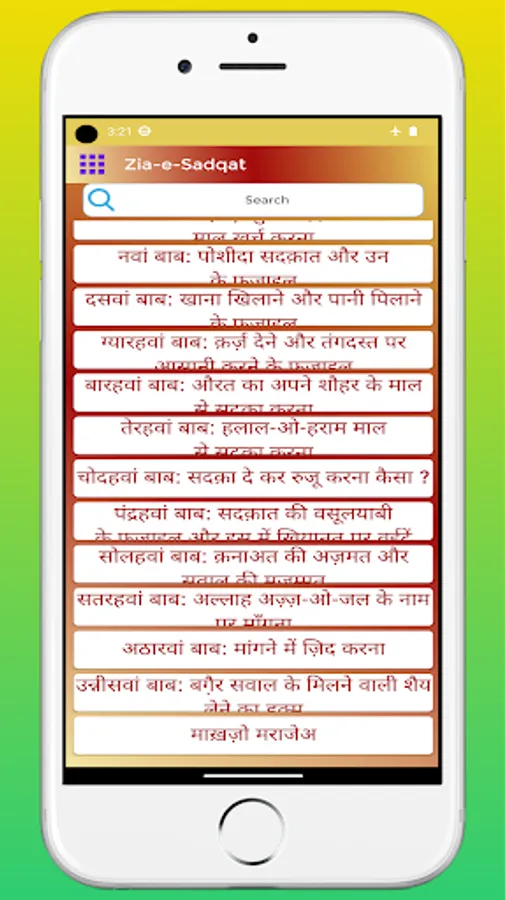 3:21
Zia-e-Sadqat
Search
माल खर्च करना
नवां बाब: पोशीदा सदक़ात और उन
के फ़ज़ाइल
दसवां बाब: खाना खिलाने और पानी पिलाने
के फ़ज़ाइल
ग्यारहवां बाब: क़र्ज़ देने और तंगदस्त पर
आसानी करने के फ़ज़ाइल
बारहवां बाब: औरत का अपने शौहर के माल
से सदक़ा करना
तेरहवां बाब: हलाल-ओ-हराम माल
से सदक़ा करना
चोदहवां बाब: सदक़ा दे कर रुजू करना कैसा ?
पंद्रहवां बाब: सदक़ात की वसूलयाबी
के फ़ज़ाइल और इस में ख़ियानत पर वईदें
सोलहवां बाब: क़नाअत की अज़मत और
सवाल की मज़म्मत
सतरहवां बाब: अल्लाह अज़्ज़-ओ-जल के नाम
पर माँगना
अठारवां बाब: मांगने में ज़िद करना
उन्नीसवां बाब: बग़ैर सवाल के मिलने वाली शैय
लेने का हुक्म
माख़ज़ो मराजेअ